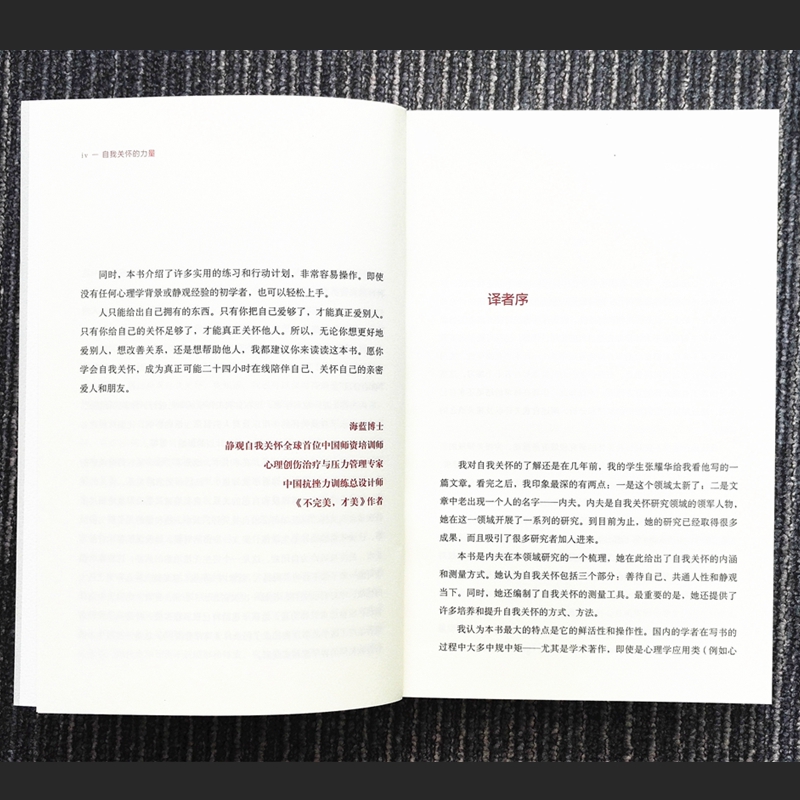 iv — 自我关怀的力量
同时，本书介绍了许多实用的练习和行动计划，非常容易操作。即使
没有任何心理学背景或静观经验的初学者，也可以轻松上手。
人只能给出自己拥有的东西。只有你把自己爱够了，才能真正爱别人。
只有你给自己的关怀足够了，才能真正关怀他人。所以，无论你想更好地
爱别人，想改善关系，还是想帮助他人，我都建议你来读读这本书。愿你
学会自我关怀，成为真正可能二十四小时在线陪伴自己、关怀自己的亲密
爱人和朋友。
海蓝博士
静观自我关怀全球首位中国师资培训师
心理创伤治疗与压力管理专家
中国抗挫力训练总设计师
《不完美，才美》作者
译者序
我对自我关怀的了解还是在几年前，我的学生张耀华给我看他写的一
篇文章。看完之后，我印象最深的有两点：一是这个领域太新了；二是文
章中老出现一个人的名字——内夫。内夫是自我关怀研究领域的领军人物，
她在这一领域开展了一系列的研究。到目前为止，她的研究已经取得很多
成果，而且吸引了很多研究者加入进来。
本书是内夫在本领域研究的一个梳理，她在此给出了自我关怀的内涵
和测量方式。她认为自我关怀包括三个部分：善待自己、共通人性和静观
当下。同时，她还编制了自我关怀的测量工具。最重要的是，她还提供了
许多培养和提升自我关怀的方式、方法。
我认为本书最大的特点是它的鲜活性和操作性。国内的学者在写书的
过程中大多中规中矩——尤其是学术著作，即使是心理学应用类（例如心